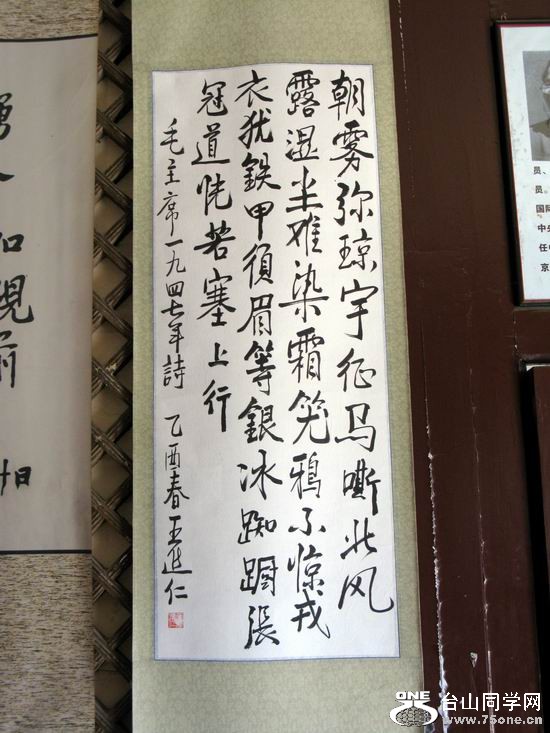 朝雾弥琼宇征马嘶北风
露湿尘难染霜笼鸦不惊戎
衣犹鉄甲須眉等銀冰踟蹰張
冠道恍若塞上行
毛主席一九四七年詩 乙酉春王进仁
员、
员。
国际
中央
任
京
ONE 台山同学网
www.75one.cn